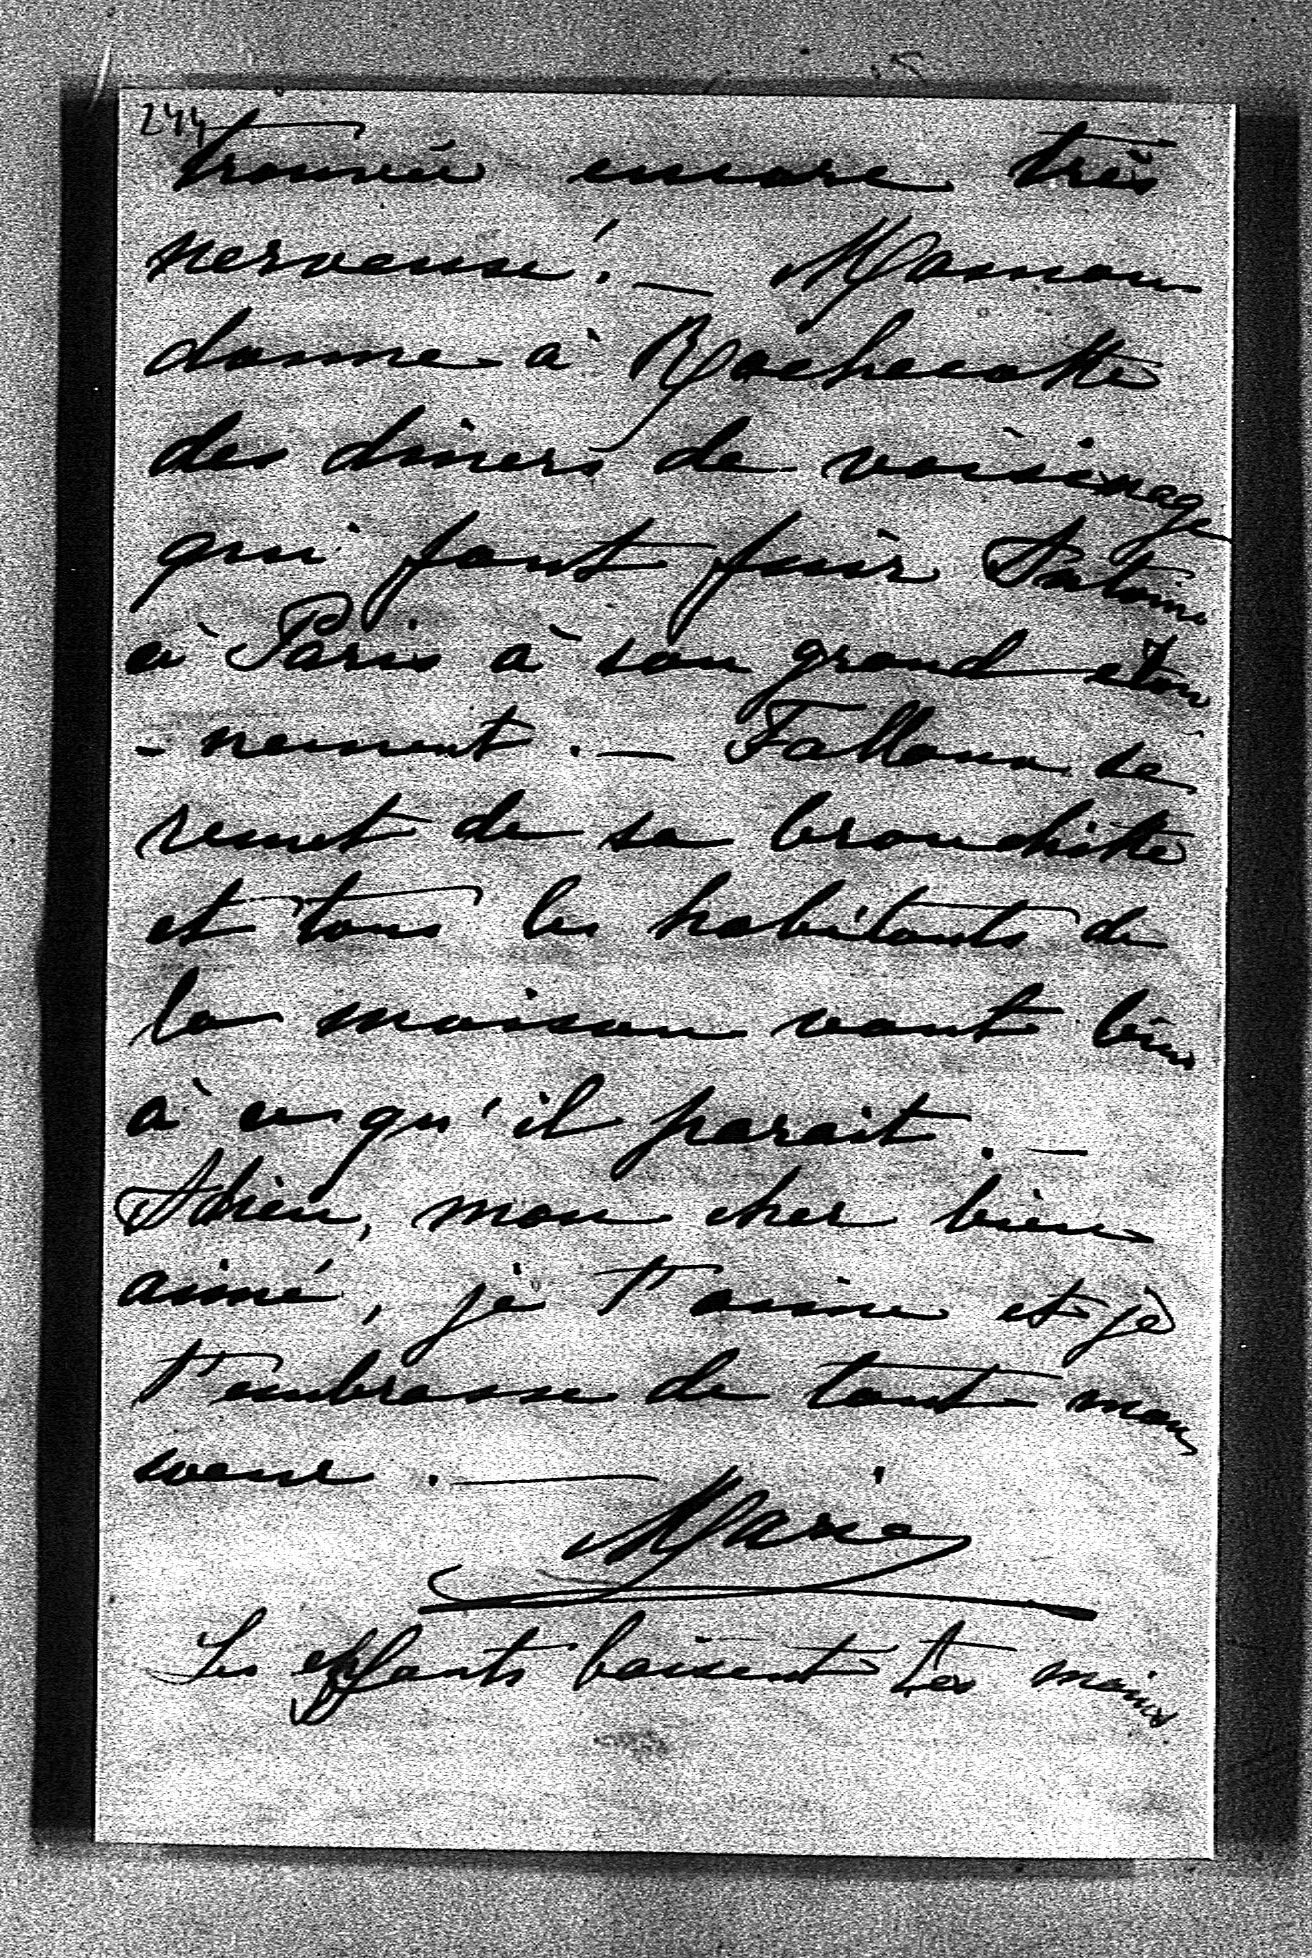 244
trouvée encore très
nerveuse! — Maman
donne à Rochecotte
des diners de voisinage
qui font fuir Antoine
à Paris à son grand éton
- nement. — Falloux se
remet de sa bronchite
et tous les habitants de
la maison vont bien
à ce qu'il parait. —
Adieu, mon cher bien
aimé, je t'aime et je
t'embrasse de tout mon
coeur. —
Marie
Les enfants baisent tes mains.